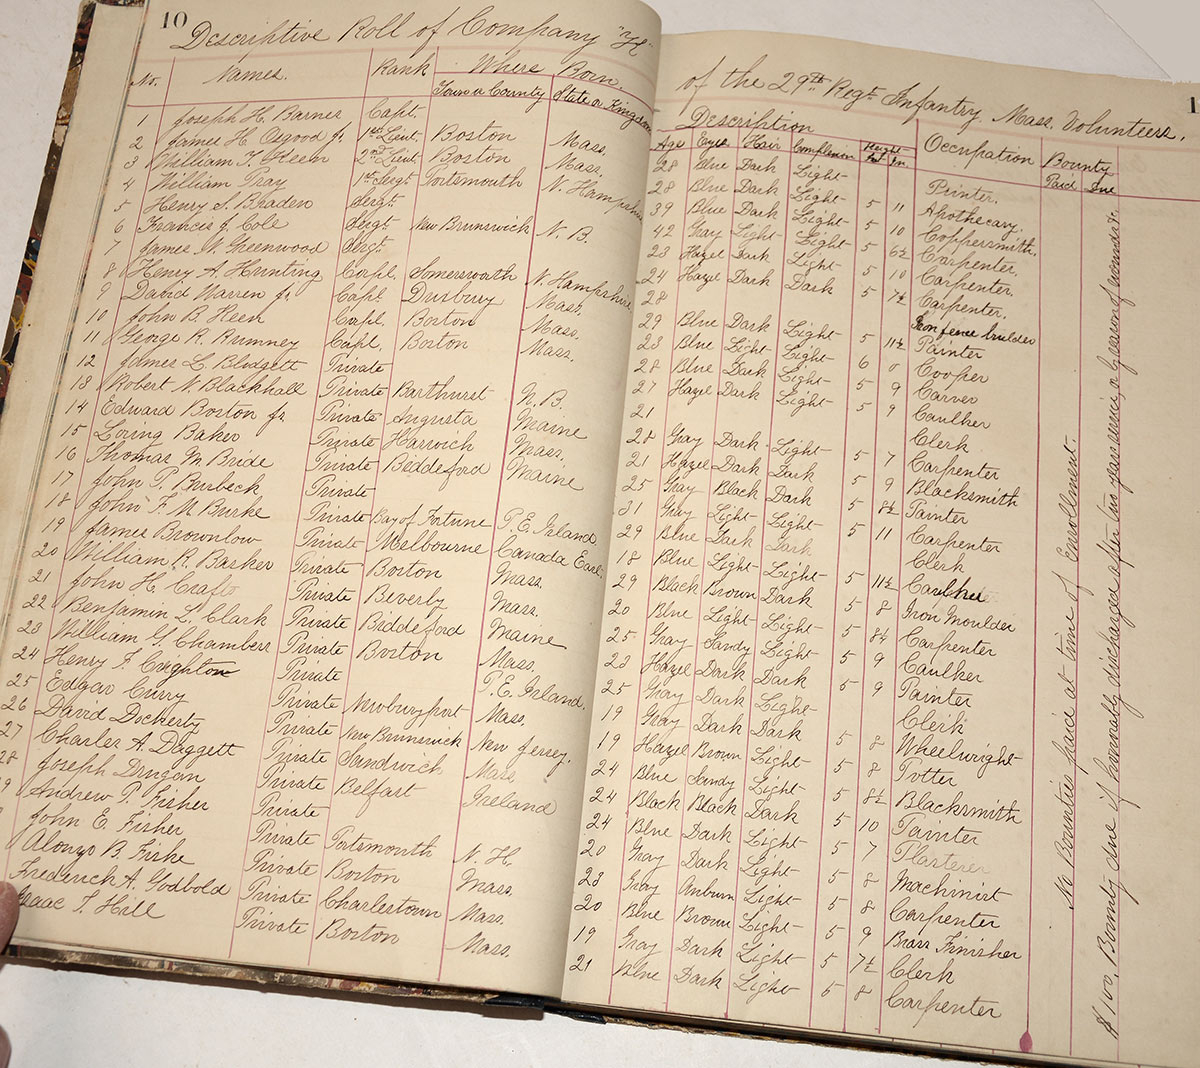 10
Descriptive Roll of Company "K"
No. Names. Rank Where Born.
Town or County State or Kingdom
1 Joseph H. Barnes Capt.
2 James H. Osgood Jr. 1st Lieut. Boston Mass.
3 William K. Keen 2nd Lieut Boston Mass.
4 William Pray 1st Sergt Portsmouth N. Hampshire
5 Henry S. Braden Sergt
6 Francis J. Cole Sergt New Brunswick N. B.
7 James N. Greenwood Sergt
8 Henry A. Hunting Corpl Somersworth N. Hampshire
9 David Warren Jr. Corpl Duxbury Mass.
10 John B. Keen Corpl Boston Mass.
11 George R. Rumney Corpl Boston Mass.
12 James L. Blodgett Private
13 Robert N. Blackhall Private Barthurst N. B.
14 Edward Boston Jr. Private Augusta Maine
15 Loring Baker Private Harwich Mass.
16 Thomas McBride Private Biddeford Maine
17 John P. Burbeck Private
18 John F. McBurke Private Bay of Fortune P. E. Island
19 James Brownlow Private Melbourne Canada East
20 William R. Barker Private Boston Mass.
21 John H. Crafts Private Beverly Mass.
22 Benjamin L. Clark Private Biddeford Maine
23 William G. Chambers Private Boston Mass.
24 Henry F. Creighton Private P. E. Island.
25 Edgar Curry Private Newburyport Mass.
26 David Docherty Private New Brunswick New Jersey.
27 Charles A. Daggett Private Sandwich Mass.
28 Joseph Drugan Private Belfast Ireland
9 Andrew P. Fisher Private
John E. Fisher Private Portsmouth N. H.
Alonzo B. Fiske Private Boston Mass.
Frederick A. Godbold Private Charlestown Mass.
Isaac T. Hill Private Boston Mass.
of the 29th Regt. Infantry, Mass. Volunteers.
1
Description Occupation Bounty
Age Eyes Hair Complexion Height Paid Due
Ft. In.
28 Blue Dark Light Printer.
28 Blue Dark Light 5 11 Apothecary.
39 Blue Dark Light 5 10 Coppersmith.
42 Gray Light Light 5 6½ Carpenter.
23 Hazel Dark Light 5 10 Carpenter.
24 Hazel Dark Dark 5 7½ Carpenter.
28 Iron fence builder
29 Blue Dark Light 5 11½ Painter
23 Blue Light Light 6 0 Cooper
28 Blue Dark Light 5 9 Carver
27 Hazel Dark Light 5 9 Caulker
21 Clerk
28 Gray Dark Light 5 7 Carpenter
21 Hazel Dark Dark 5 9 Blacksmith
25 Gray Black Dark 5 8½ Painter
31 Gray Light Light 5 11 Carpenter
29 Blue Dark Dark Clerk
18 Blue Light Light 5 11½ Caulker
29 Black Brown Dark 5 8 Iron Moulder
20 Blue Light Light 5 8½ Carpenter
25 Gray Sandy Light 5 9 Caulker
23 Hazel Dark Dark 5 9 Painter
25 Gray Dark Light Clerk
19 Gray Dark Dark 5 8 Wheelwright
19 Hazel Brown Light 5 8 Potter
24 Blue Sandy Light 5 8½ Blacksmith
24 Black Black Dark 5 10 Painter
24 Blue Dark Light 5 7 Plasterer
20 Gray Dark Light 5 8 Machinist
23 Gray Auburn Light 5 8 Carpenter
20 Blue Brown Light 5 9 Brass Finisher
19 Gray Dark Light 5 7½ Clerk
21 Blue Dark Light 5 8 Carpenter
No Bounties paid at time of Enrollment.
$100. Bounty due if honorably discharged after two years service, or by reason of wounds &c.